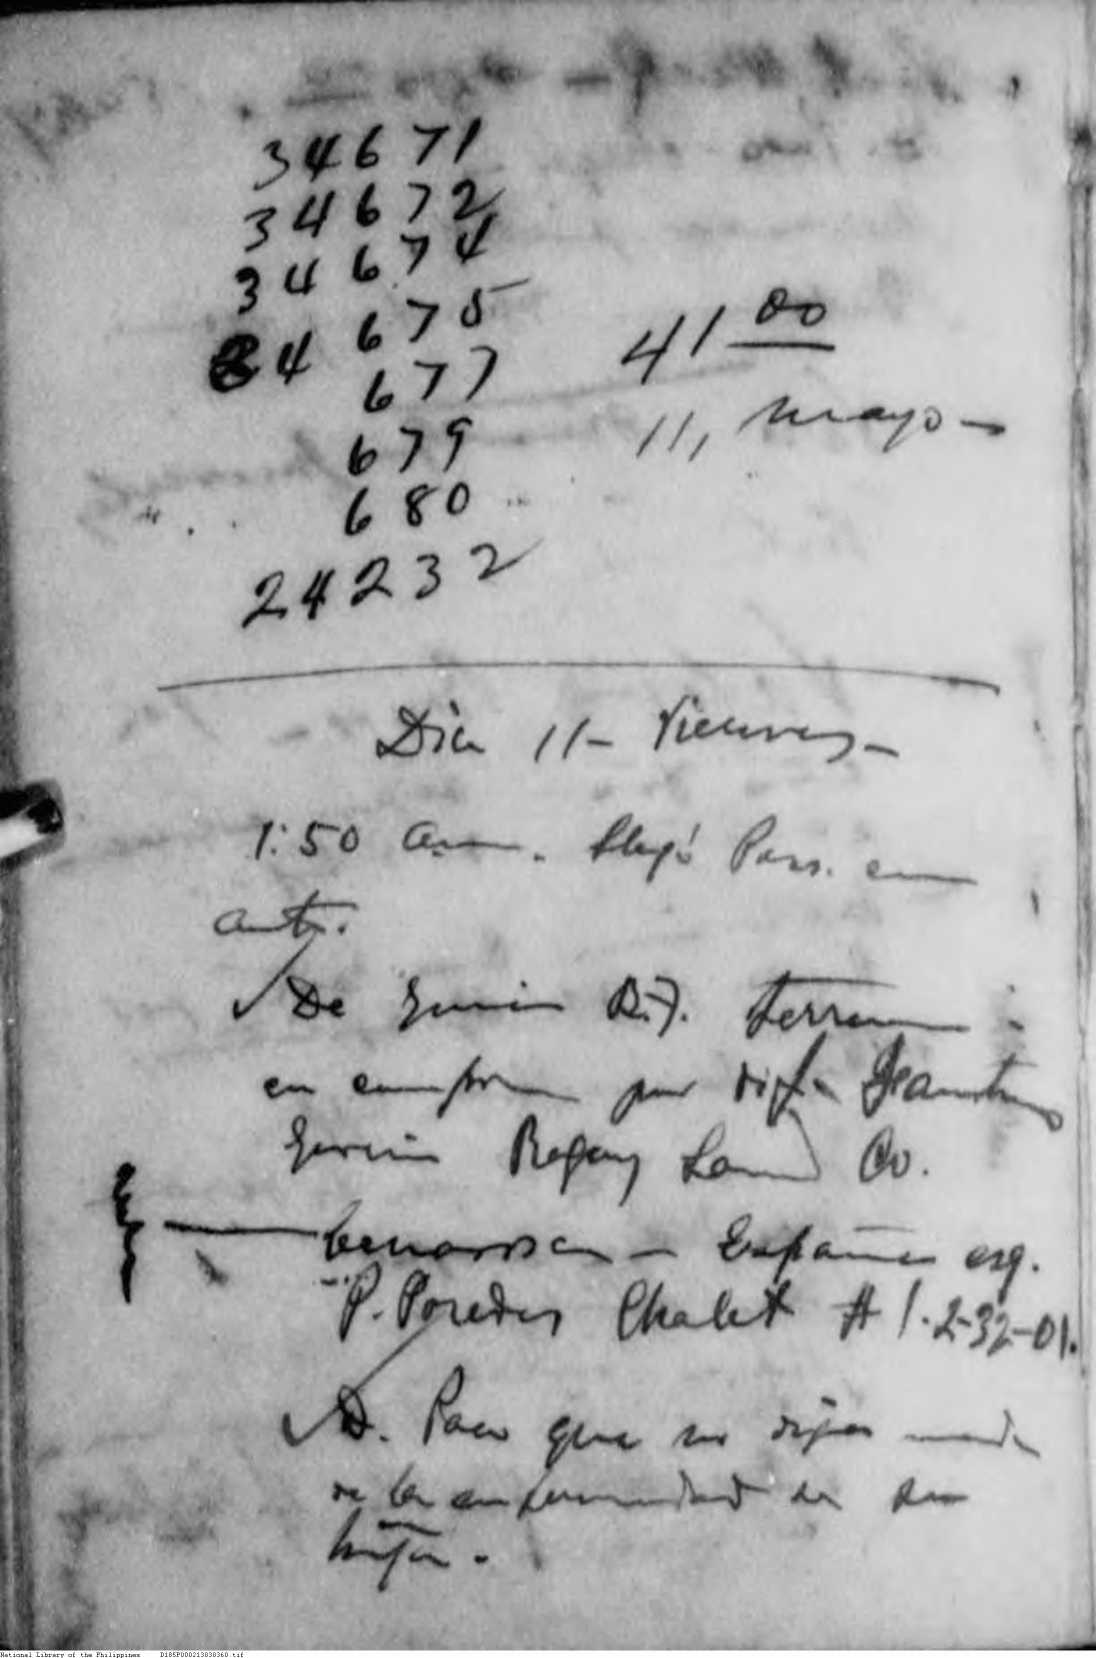 34671
34672
34674
34 675
677
679
680
24232
41 00
11, mayo-
Dia 11- Viernes-
1:50 am. Llegó Pass. en
auto.
De R.J. terreno
en por
Ragay Land Co.
Genarosa - España esq.
P. Paredes Chalet # 1. 2-32-01.
D. Paco que no dijera nada
de la enfermedad de su
hija.
National Library of the Philippines D185P000213838360.tif